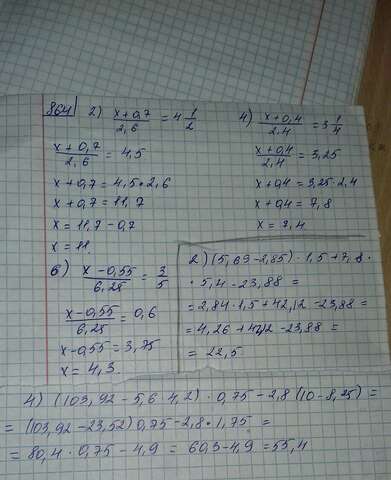 864
2) (x+0,7)/2,6 = 4 1/2
(x+0,7)/2,6 = 4,5
x+0,7 = 4,5·2,6
x+0,7 = 11,7
x = 11,7-0,7
x = 11.
4) (x+0,4)/2,4 = 3 1/4
(x+0,4)/2,4 = 3,25
x+0,4 = 3,25·2,4
x+0,4 = 7,8
x = 7,4
6) (x-0,55)/6,25 = 3/5
(x-0,55)/6,25 = 0,6
x-0,55 = 3,75
x = 4,3.
2) (5,69-2,85)·1,5+7,8·
·5,4-23,88 =
=2,84·1,5+42,12-23,88=
=4,26+42,12-23,88 =
= 22,5.
4) (103,92-5,6·4,2)·0,75-2,8(10-8,25) =
= (103,92-23,52)0,75-2,8·1,75 =
= 80,4·0,75-4,9 = 60,3-4,9=55,4